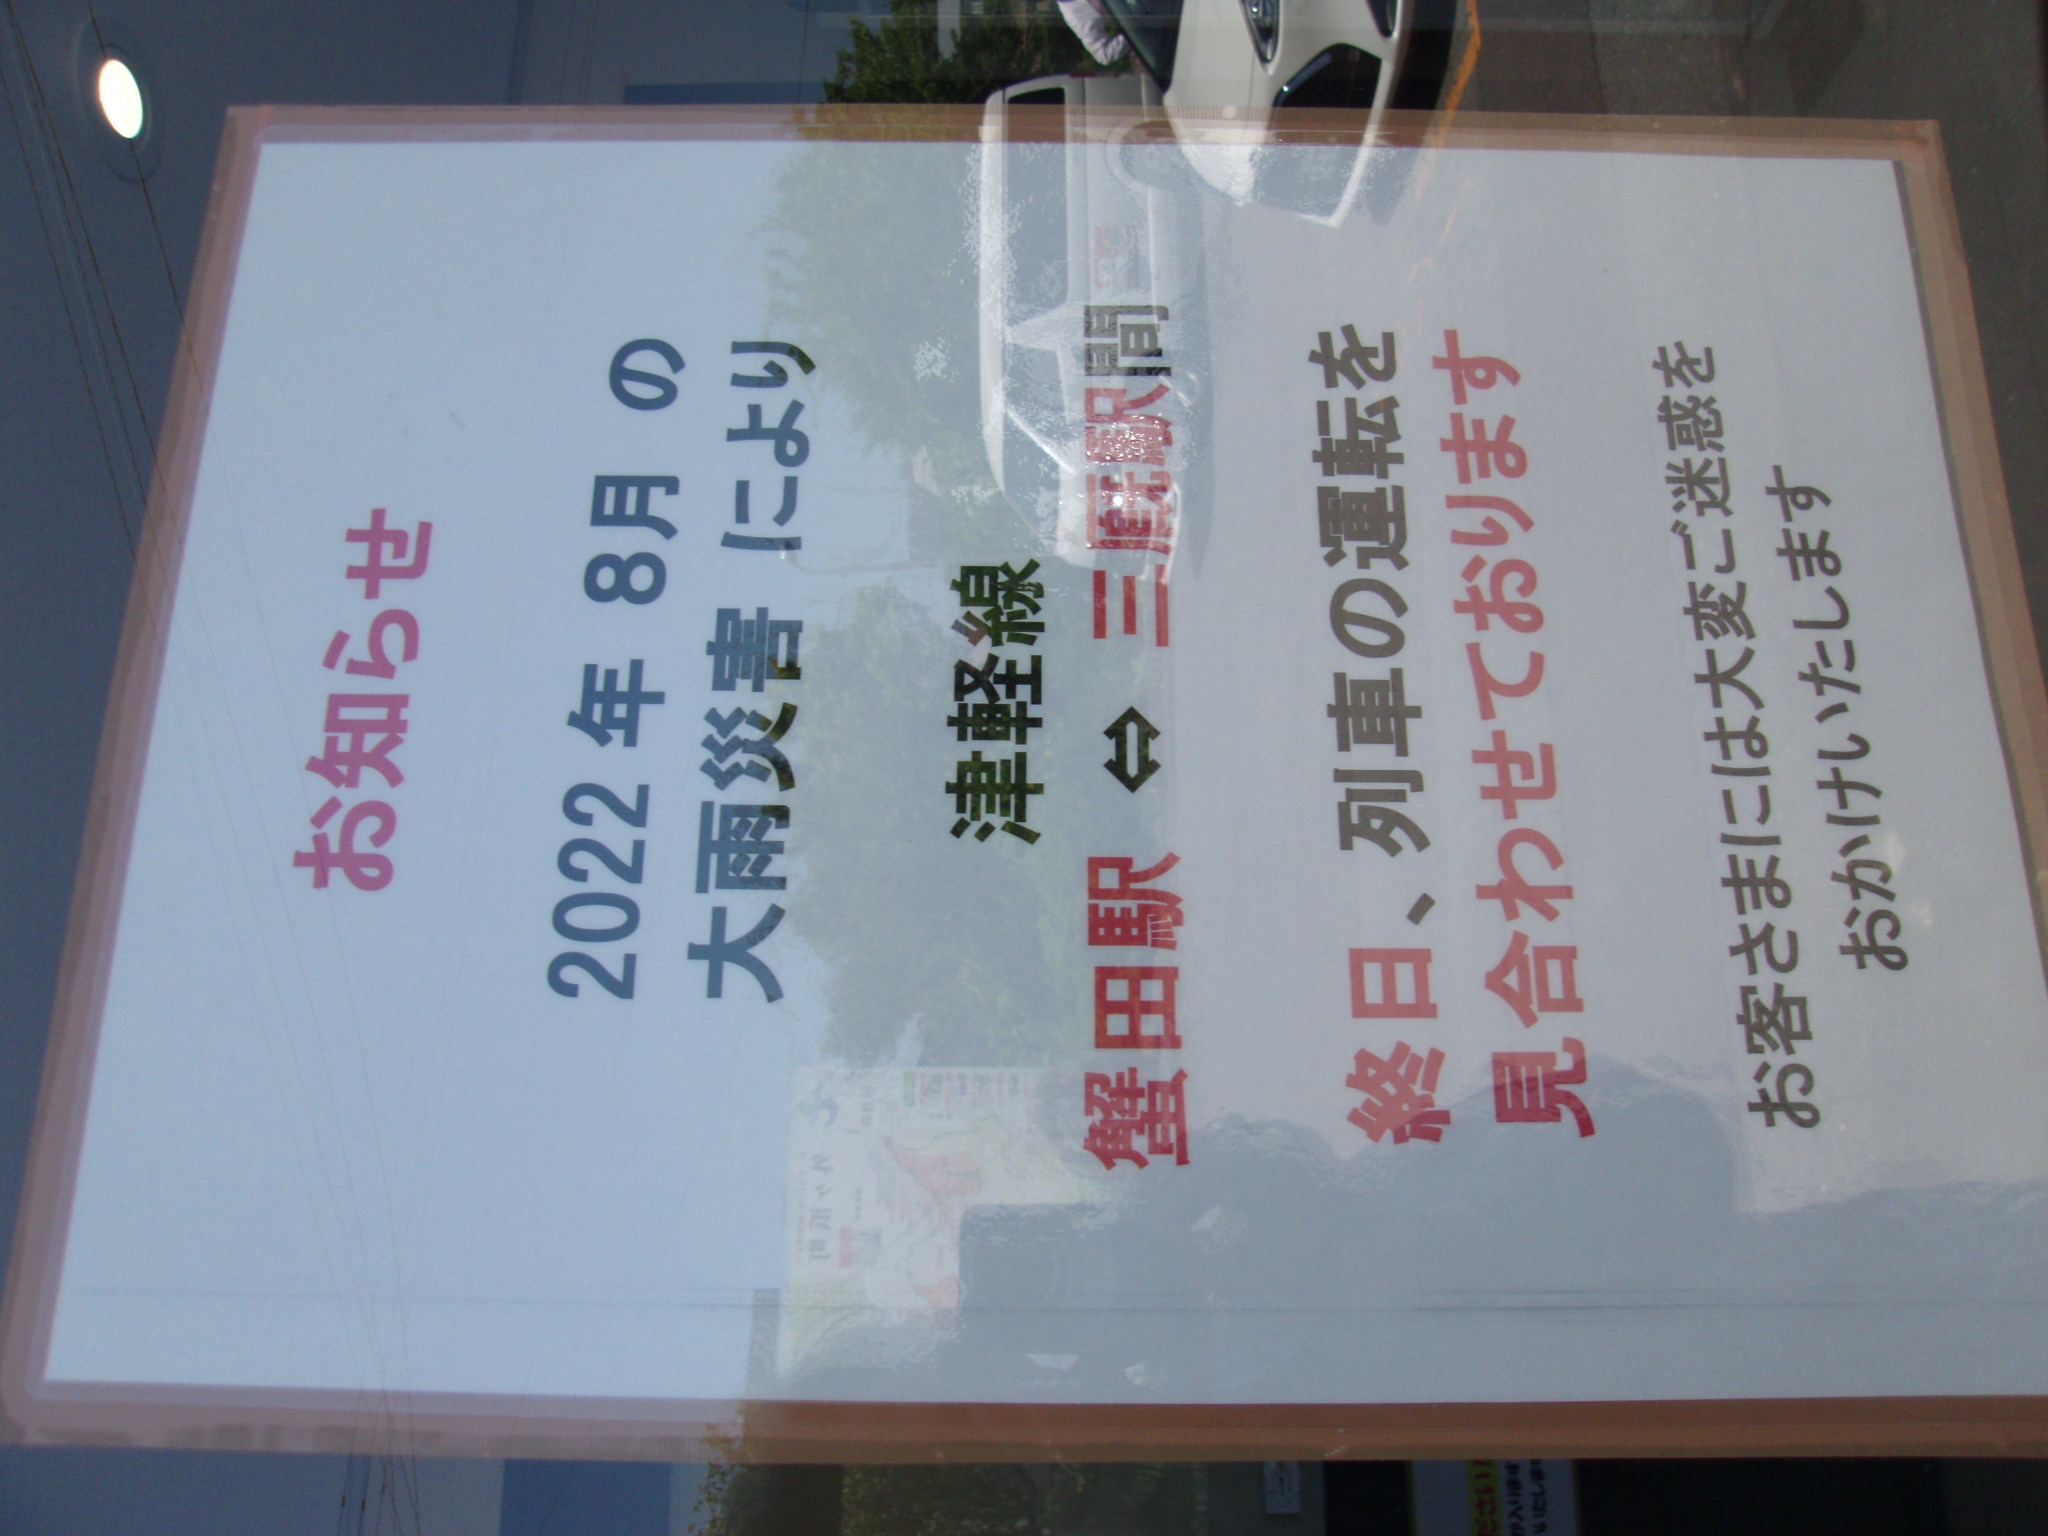 お知らせ
2022年 8月 の
大雨災害 により
津軽線
蟹田駅 ⇔ 三厩駅間
終日、列車の運転を
見合わせております
お客さまには大変ご迷惑を
おかけいたします
外ヶ浜町